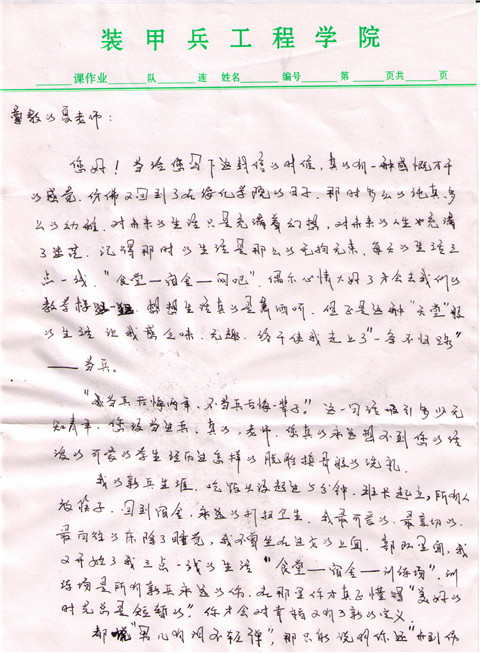 装甲兵工程学院
课作业 队 连 姓名 编号 第 页共 页
尊敬的夏老师：
您好！当给您写下这封信的时候，真的有一种感慨万千
的感觉，仿佛又回到了在 化学院的日子，那时多么的纯真，多
么的幼稚，对未来的生活只是充满着幻想，对未来的人生也充满
了迷茫。记得那时的生活是那么的无拘无束，每天的生活三
点一线，“食堂—宿舍—网吧”，偶尔心情大好了才会去我们的
教学楼 想想生活真的是 。但正是这种“天堂”般
的生活让我感乏味、无趣，终于使我走上了“一条不归路”
——当兵。
“当兵后悔两年，不当兵后悔一辈子。”这一句话吸引多少无
知青年，您没当过兵，真的，老师，您真的永远想不到您的活
泼的可爱的学生经历过怎样的脱胎换骨般的洗礼。
我的新兵生涯，吃饭没超过5分钟，班长起立，所有人
放筷子，回到宿舍，永远的打扫卫生，我最可爱的、最亲切的、
最向往的东 除了睡觉，我不 在这 的上面，部队里面，我
又开始了我三点一线的生活 “食堂—宿舍—训练场”，训
练场是所有新兵永远的 ，在那里你才真正懂得“美好的
时光总是短暂的”你才会对幸福又有了新的定义。
都说“男儿有泪不轻弹”，那只能说明你还 到伤